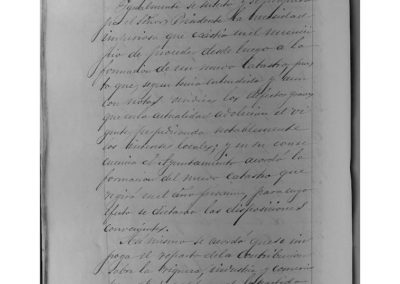 Igualmente se
por el Señor Presidente la necesidad
imperiosa que existia en el munici
pio de proceder desde luego a la
formacion de un nuevo Catastro, pues
to que, segun tenia entendido y aun
con notas los defectos graves
que en la actualidad adolecia el vi
gente perjudicando notablemente
los intereses locales; y en su conse
cuencia el Ayuntamiento acordó la
formacion del nuevo catastro que
regirá en el año proximo, para cuyo
efecto se dictaron las disposiciones
convenientes.
Asi mismo se acordó que se im
ponga el reparto de la Contribucion
sobre la Riqueza, industria y comercio